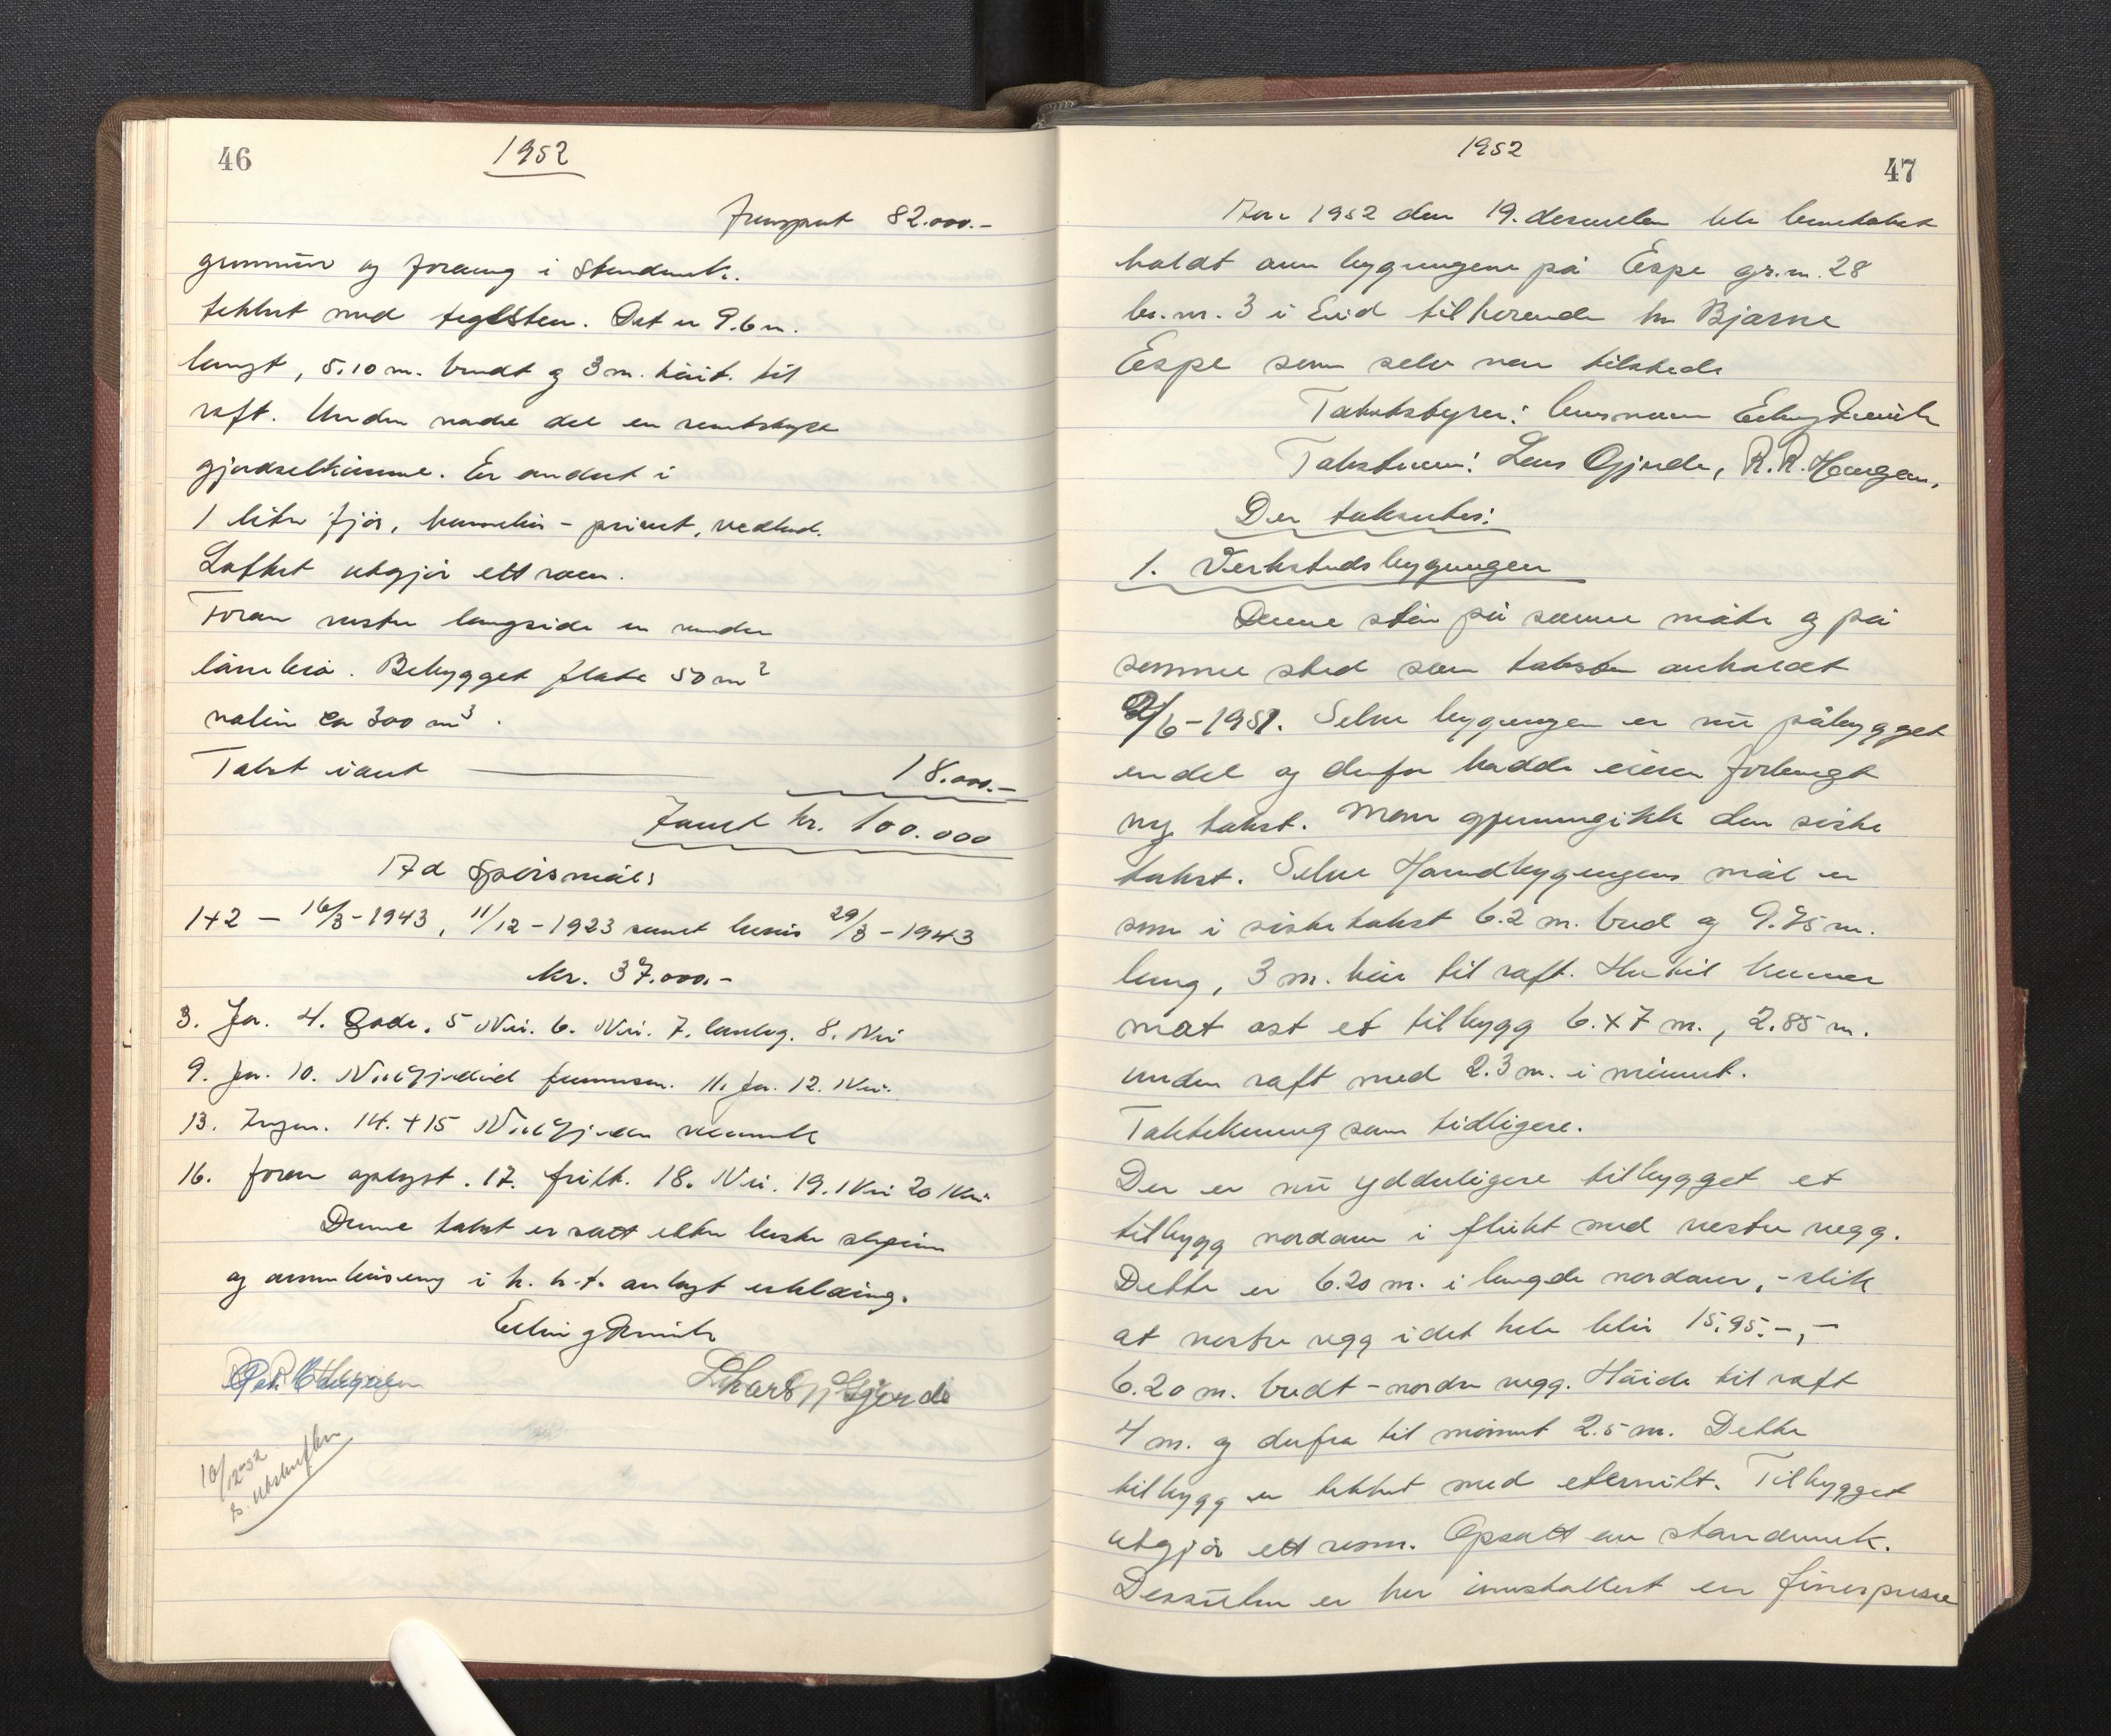 46
1952
Transport 82.000.-
grunnmur og foraung i Standverk.
tekket med teglsten. Det er 9.6 m.
langt, 5.10 m. bredt og 3 m. høit. til
raft. Under nedre del er
gjødselkummer. Er inndelt i
1 liten fjøs, - privet, vedbod.
Loftet utgjør ett rom.
Foran vestre langside er under
låvebro. Bebygget flate 50 m²
volum ca 300 m³.
Takst iallt 18.000.-
Tilsammen kr. 100.000
Ad spørsmål:
1+2 - 16/3-1943, 11/12-1923 samt 29/3-1943
kr. 37.000.-
3. Ja. 4. Gode. 5 Nei. 6. Nei. 7. 8. Nei
9. Ja. 10. 11. Ja. 12. Nei.
13. Ingen. 14. + 15
16. foran oplyst. 17. fritt. 18. Nei. 19. Nei 20 Nei
Denne takst er satt efter beste skjønn
og i h. h. t. avlagt erklæring.
Erling
Lars Gjerde
10/12-52
s. utskriften
1952
47
Aar 1952 den 19. desember ble branntakst
holdt over bygningene på Espe gr.nr. 28
br.nr. 3 i Eid tilhørende hr Bjarne
Espe som selv var tilstede
Takstbyrer: lensmann Erling
Takstmenn: Lars Gjerde, R. R. Haugen.
Der takseres:
1. Verkstedsbygningen
Denne står på samme måte og på
samme sted som taksten avholdt
2/6-1951. Selve bygningen er nu påbygget
endel og derfor hadde eieren forlangt
ny takst. Man gjennomgikk den siste
takst. Selve Hovedbygningens mål er
som i siste takst 6.2 m. bred og 9.75 m.
lang, 3 m. høi til raft. Hertil kommer
mot øst et tilbygg 6.x7 m., 2.85 m.
under raft med 2.3 m. i mønnet.
Taktekning som tidligere.
Der er nu ydderligere tilbygget et
tilbygg nordover i flukt med vestre vegg.
Dette er 6.20 m. i lengde nordover, - slik
at vestre vegg i det hele blir 15.95.-,-
6.20 m. bredt - nordre vegg. Høide til raft
4 m. og derfra til mønnet 2.5 m. Dette
tilbygg er tekket med eternitt. Tilbygget
utgjør ett rom. Opsatt av standverk.
Dessuten er her innstallert en finerpresse